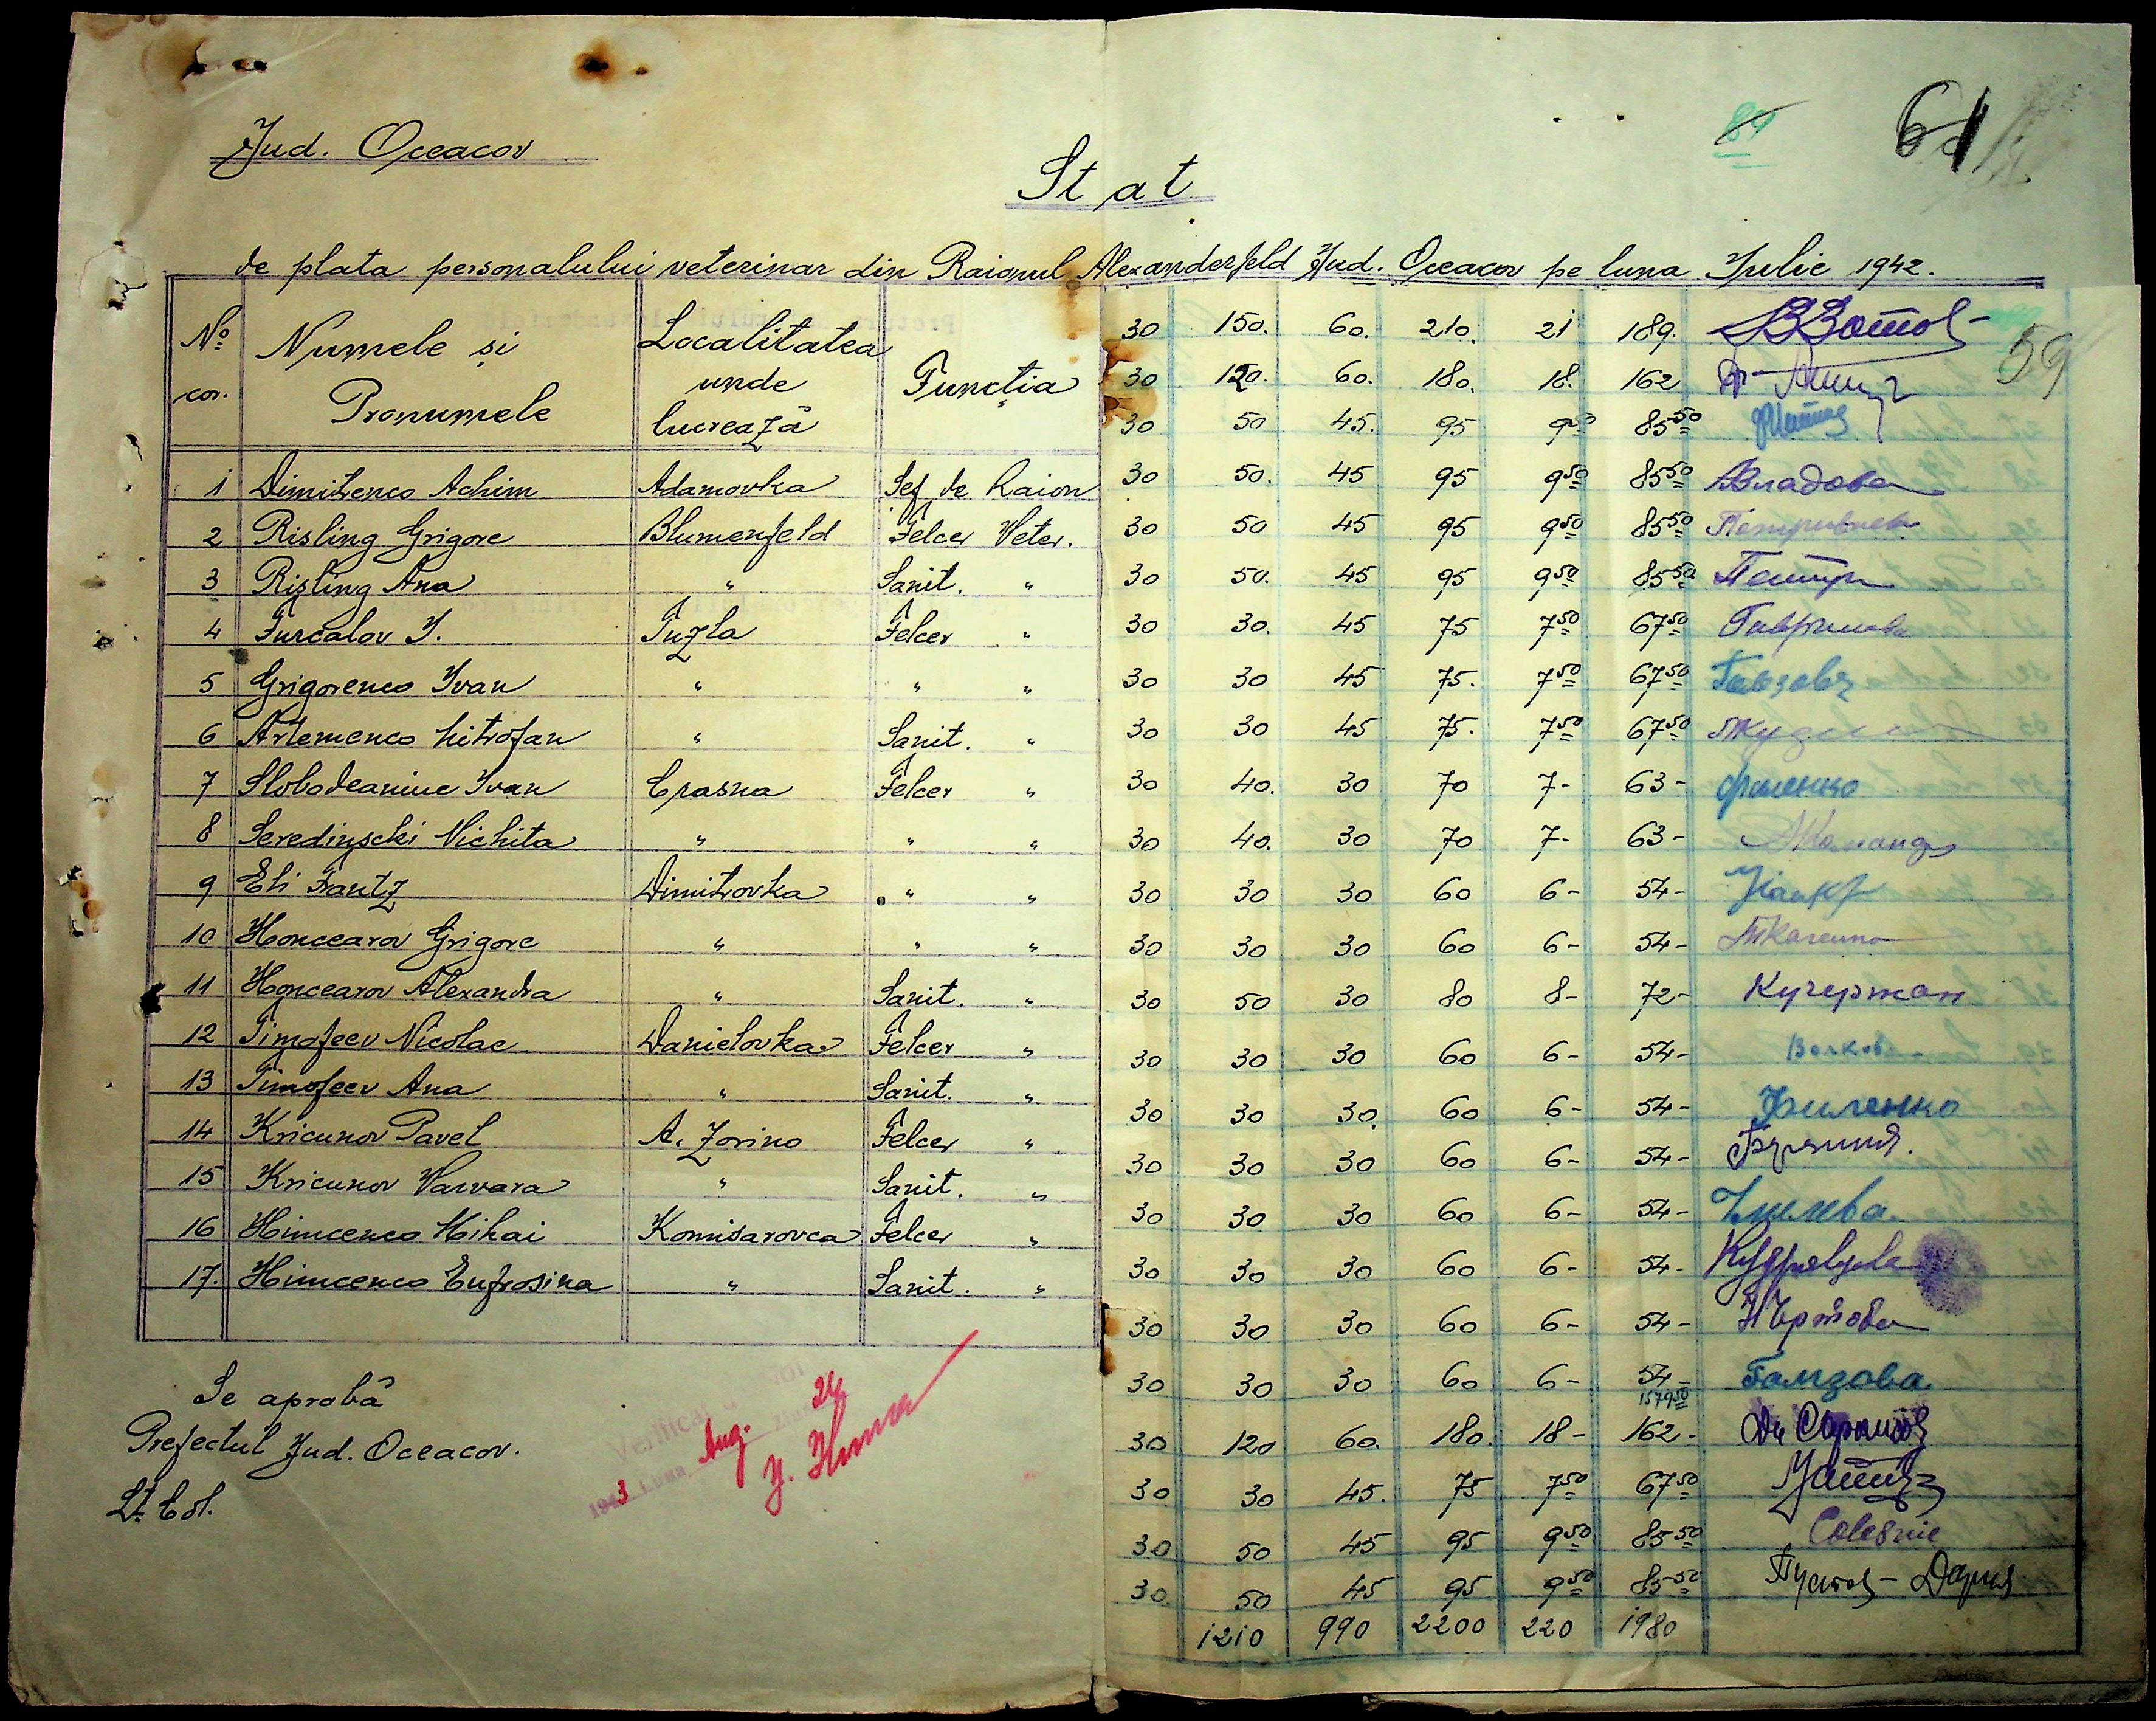 Jud. Oceacov
84
61
Stat
de plata personalului veterinar din Raionul Alexanderfeld Jud. Oceacov pe luna Iulie 1942.
59
No cor. Numele și Pronumele Localitatea unde lucrează Funcția
1 Dimitrenco Achim Adamovka Șef de Raion
2 Risling Grigore Blumenfeld Felcer Veter.
3 Risling Ana " Sanit. "
4 Furcalov I. Tuzla Felcer "
5 Grigorenco Ivan " " "
6 Artemenco Mitrofan " Sanit. "
7 Slobodeaniuc Ivan Crasna Felcer "
8 Seredinschi Nichita " " "
9 Eli Frantz Dimitrovka " "
10 Honcearov Grigore " " "
11 Honcearov Alexandra " Sanit. "
12 Timofeev Nicolae Danielovka Felcer "
13 Timofeev Ana " Sanit. "
14 Kricunov Pavel A. Zorino Felcer "
15 Kricunov Varvara " Sanit. "
16 Himcenco Mihai Komisarovca Felcer "
17. Himcenco Eufrosina " Sanit. "
Se aprobă
Prefectul Jud. Oceacov.
Lt. Col.
Verificat
1943 Luna Aug. Ziua 24
30 150. 60. 210. 21 189.
30 120. 60. 180. 18. 162
30 50 45. 95 9 50 85 50
30 50. 45 95 9 50 85 50 Владова
30 50 45 95 9 50 85 50
30 50. 45 95 9 50 85 50
30 30. 45 75 7 50 67 50 Гаврилова
30 30 45 75. 7 50 67 50
30 30 45 75. 7 50 67 50
30 40. 30 70 7- 63-
30 40. 30 70 7- 63-
30 30 30 60 6- 54-
30 30 30 60 6- 54- Ткаченко
30 50 30 80 8- 72- Кучерman
30 30 30 60 6- 54- Волкова
30 30 30 60 6- 54-
30 30 30 60 6- 54-
30 30 30 60 6- 54-
30 30 30 60 6- 54- Кудрявцева
30 30 30 60 6- 54-
30 30 30 60 6- 54- Гамзова
1579 50
30 120 60. 180. 18- 162-
30 30 45. 75 7 50 67 50
30 50 45 95 9 50 85 50 Colesnic
30 50 45 95 9 50 85 50 Дария
1210 990 2200 220 1980